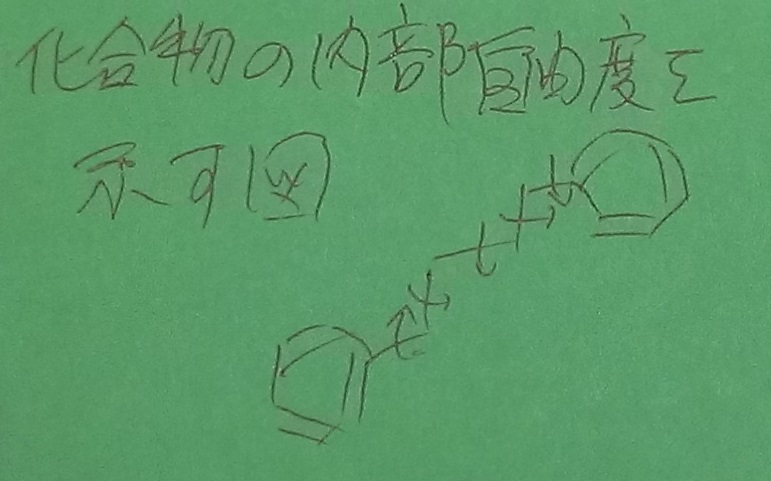 化合物の内部自由度を
示す図